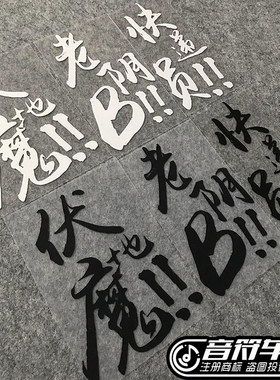 伏地魔!!
老阴B!!
快递员!!
伏地魔!!
老阴B!!
快递员!!
音符车
注册商标 盗图投